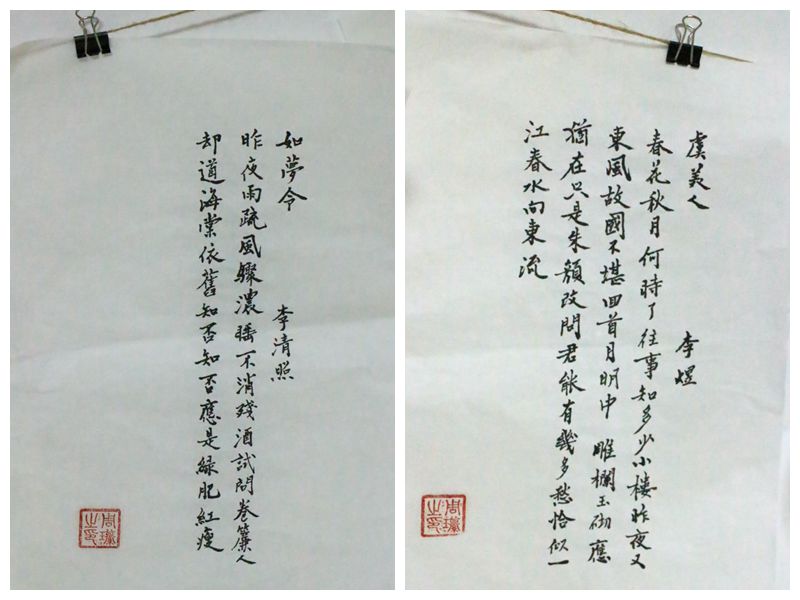 如夢令
李清照
昨夜雨疏風驟濃睡不消殘酒試問卷簾人
却道海棠依舊知否知否應是綠肥紅瘦
虞美人
李煜
春花秋月何時了往事知多少小樓昨夜又
東風故國不堪回首月明中 雕欄玉砌應
猶在只是朱顏改問君能有幾多愁恰似一
江春水向東流